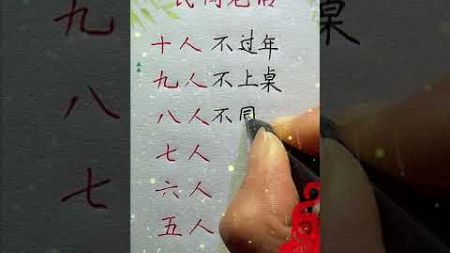 民间老话
十人不过年
九人不上桌
八人不同
七人
六人
五人